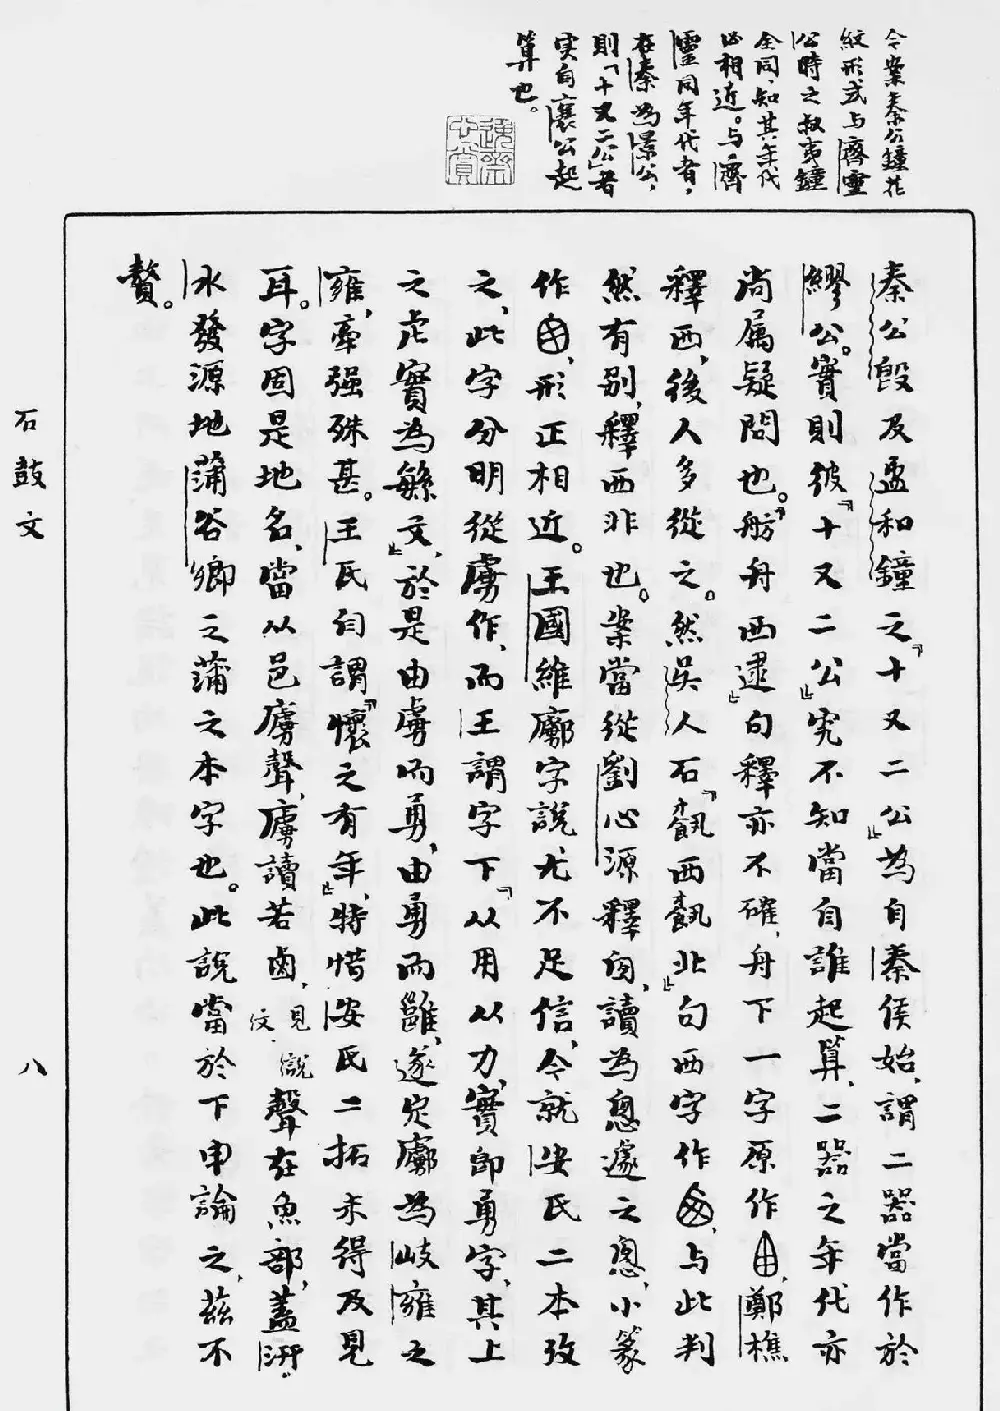 今案秦公鐘花
紋形式与齊靈
公時之叔夷鐘
全同,知其年代
必相近。与齊
靈同年代者,
在秦為景公,
則「十又二公」者
实自襄公起
算也。
秦公𣪘及盄和鐘之「十又二公」為自秦侯始,謂二器當作於
繆公。實則彼「十又二公」究不知當自誰起算,二器之年代亦
尚属疑問也。「舫舟西逮」句釋亦不確,舟下一字原作,鄭樵
釋西,後人多從之。然吳人石「西北」句西字作,与此判
然有别,釋西非也。案當從劉心源釋囱,讀為悤遽之悤,小篆
作囱,形正相近。王國維鄺字說,尤不足信,今就安氏二本攷
之,此字分明從虜作,而王謂字下「从用从力」,實即勇字,其上
之虍實為緐文,於是由虜而勇,由勇而雝,遂定鄺為岐雍之
雍,牽强殊甚。王氏自謂「懷之有年」,特惜安氏二拓未得及見
耳。字固是地名,當从邑虜聲,虜讀若鹵,見說文,聲在魚部,蓋汧
水發源地蒲谷鄉之蒲之本字也。此說當於下申論之,茲不
贅。
石鼓文
八